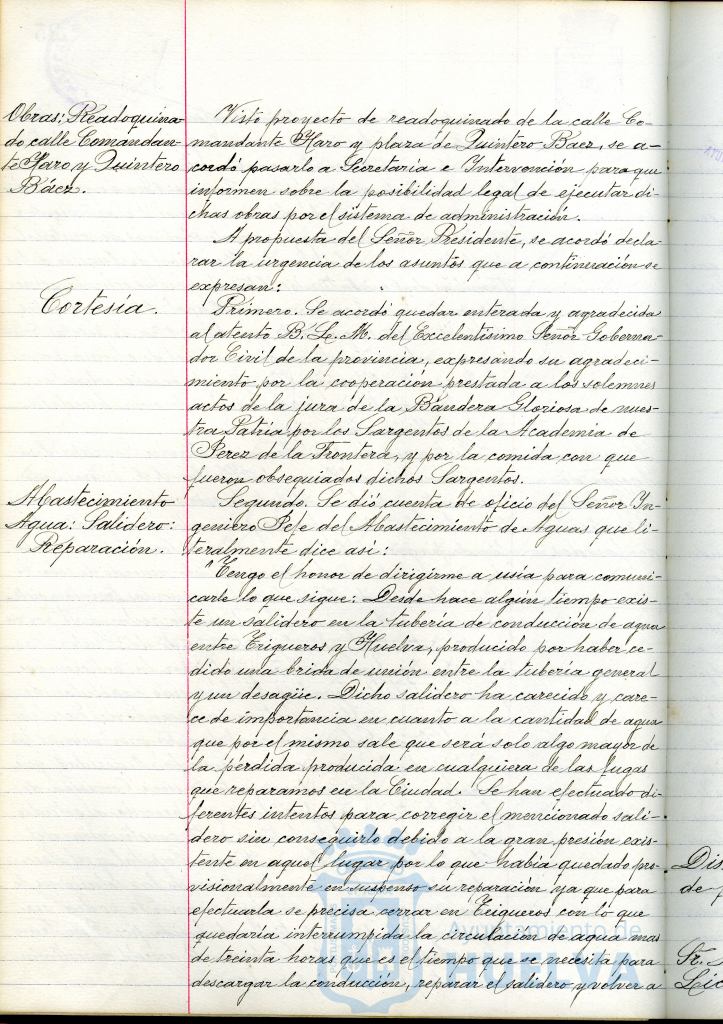 Obras: Readoquina-
do calle Comandan-
te Haro y Quintero
Báez.
Visto proyecto de readoquinado de la calle Co-
mandante Haro y plaza de Quintero Baez, se a-
cordó pasarlo a Secretaría e Intervención para que
informen sobre la posibilidad legal de ejecutar di-
chas obras por el sistema de administración.
A propuesta del Señor Presidente, se acordó decla-
rar la urgencia de los asuntos que a contineración se
expresan:
Cortesía.
Primero. Se acordó quedar enterada y agradecida
al atento B. L. M. del Excelentísimo Señor Goberna-
dor Civil de la provincia, expresando su agradeci-
miento por la cooperación prestada a los solemnes
actos de la jura de la Bandera Gloriosa de nues-
tra Patria por los Sargentos de la Academia de
Jerez de la Frontera, y por la comida con que
fueron obsequiados dichos Sargentos.
Abastecimiento
Agua: Salidero:
Reparación.
Segundo. Se dió cuenta de oficio del Señor In-
geniero Jefe del Abastecimiento de Aguas que li-
teralmente dice así:
"Tengo el honor de dirigirme a usía para comuni-
carle lo que sigue: Desde hace algún tiempo exis-
te un salidero en la tubería de conducción de agua
entre Trigueros y Huelva, producido por haber ce-
dido una brida de unión entre la tubería general
y un desagüe. Dicho salidero ha carecido y care-
ce de importancia en cuanto a la cantidad de agua
que por el mismo sale que será solo algo mayor de
la pérdida producida en cualquiera de las fugas
que reparamos en la Ciudad. Se han efectuado di-
ferentes intentos para corregir el mencionado sali-
dero sin conseguirlo debido a la gran presión exis-
tente en aquel lugar por lo que había quedado pro-
visionalmente en suspenso su reparación ya que para
efectuarla se precisa cerrar en Trigueros con lo que
quedaría interrumpida la circulación de agua mas
de treinta horas que es el tiempo que se necesita para
descargar la conducción, reparar el salidero y volver a
Ayuntamiento de
HUELVA
Dis
de
Sr.
Lic